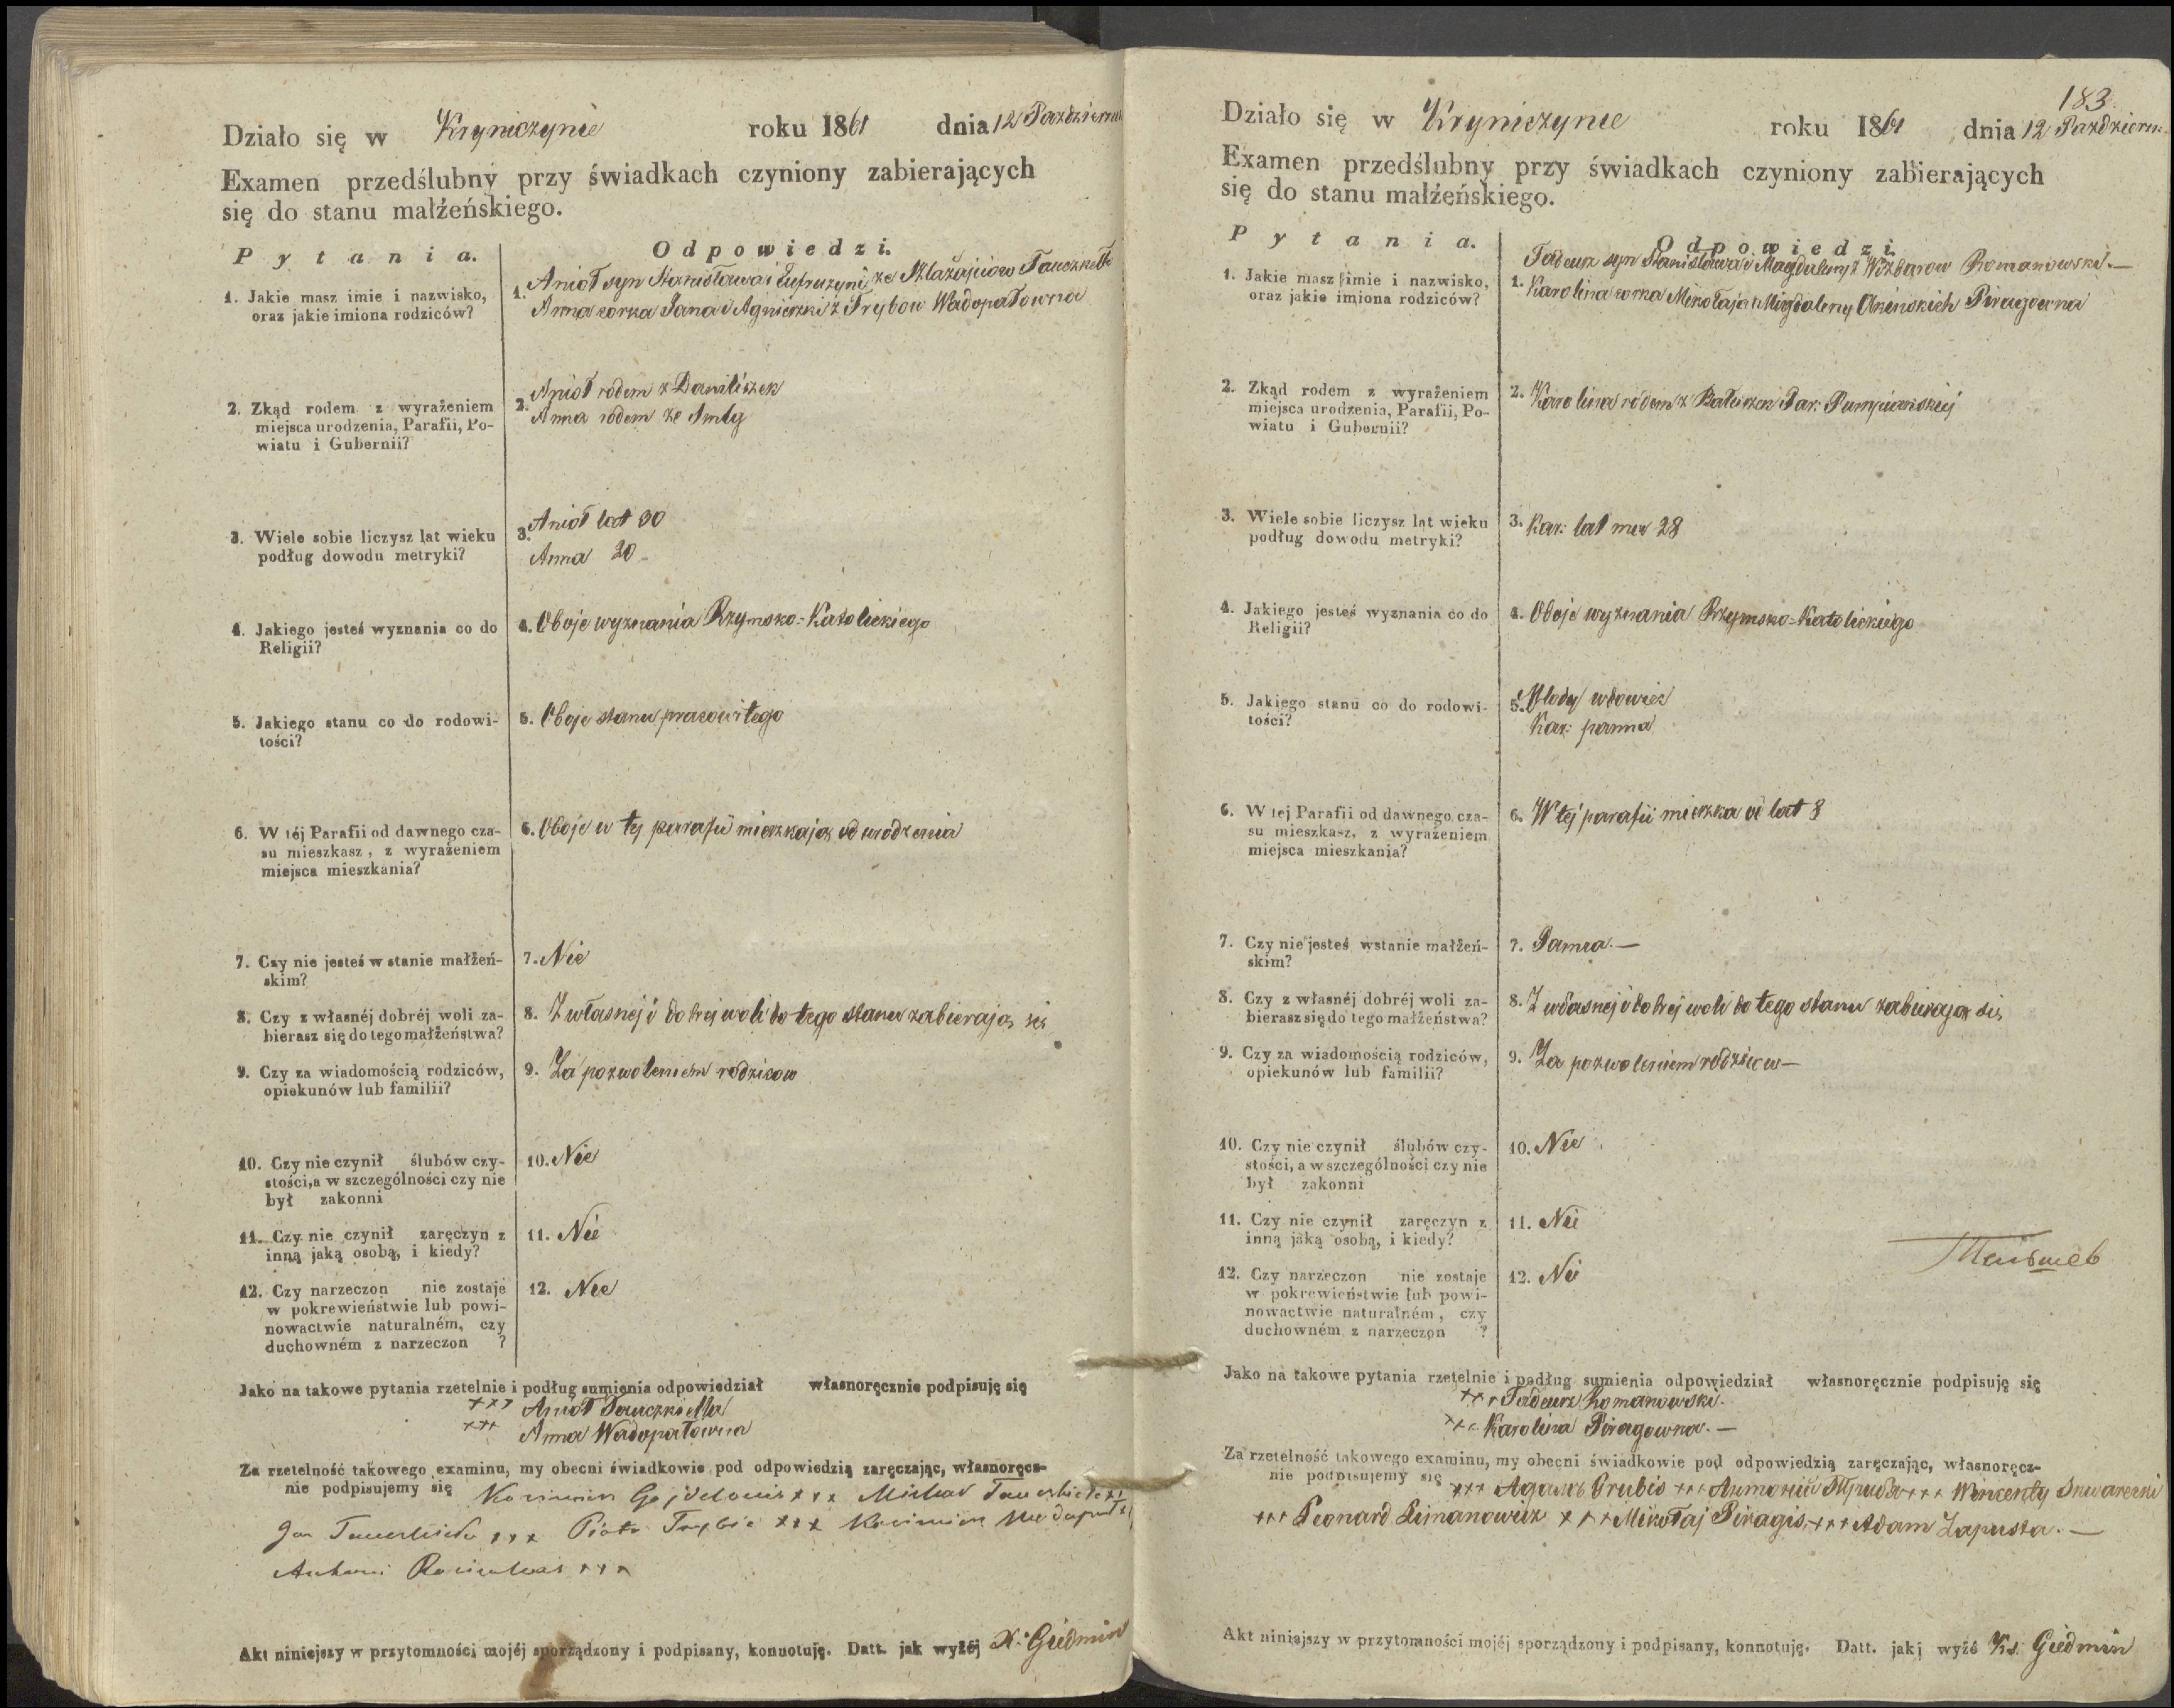 Działo się w Kryniczynie roku 1861 dnia 12 Październ
Examen przedślubny przy świadkach czyniony zabierających
się do stanu małżeńskiego.
Pytania. Odpowiedzi.
1. Jakie masz imie i nazwisko,
oraz jakie imiona rodziców?
1. Anioł syn Stanisława i Eufruzyni ze
Anna corka Jana i Agnieszki z Trybow Wadopałowna
2. Zkąd rodem z wyrażeniem
miejsca urodzenia, Parafii, Po-
wiatu i Gubernii?
2. Anioł rodem z Daniliszek
Anna rodem ze Smily
3. Wiele sobie liczysz lat wieku
podług dowodu metryki?
3. Anioł lat 30
Anna 20
4. Jakiego jesteś wyznania co do
Religii?
4. Oboje wyznania Rzymsko-Katolickiego
5. Jakiego stanu co do rodowi-
tości?
5. Oboje stanu pracowitego
6. W téj Parafii od dawnego cza-
su mieszkasz, z wyrażeniem
miejsca mieszkania?
6. Oboje w tej parafii mieszkają od urodzenia
7. Czy nie jesteś w stanie małżeń-
skim?
7. Nie
8. Czy z własnéj dobréj woli za-
bierasz się do tego małżeństwa?
8. Z własnej i dobrej woli do tego stanu zabierają się
9. Czy za wiadomością rodziców,
opiekunów lub familii?
9. Za pozwoleniem rodzicow
10. Czy nie czynił ślubów czy-
stości, a w szczególności czy nie
był zakonni
10. Nie
11. Czy nie czynił zaręczyn z
inną jaką osobą, i kiedy?
11. Nie
12. Czy narzeczon nie zostaje
w pokrewieństwie lub powi-
nowactwie naturalném, czy
duchowném z narzeczon ?
12. Nie
Jako na takowe pytania rzetelnie i podług sumienia odpowiedział własnoręcznie podpisuję się
+++ Anioł Tauczkiełła
+++ Anna Wadopałowna
Za rzetelność takowego examinu, my obecni świadkowie pod odpowiedzią zaręczając, własnoręcz-
nie podpisujemy się Kazimierz +++ Michał
Jan +++ Piotr Trybis +++ Kazimierz
Antoni +++
Akt niniejszy w przytomności mojéj sporządzony i podpisany, konnotuję. Datt. jak wyżéj X. Giedmin
183.
Działo się w Kryniczynie roku 1861 dnia 12 Październ.
Examen przedślubny przy świadkach czyniony zabierających
się do stanu małżeńskiego.
Pytania. Odpowiedzi.
1. Jakie masz imie i nazwisko,
oraz jakie imiona rodziców?
Tadeusz syn Stanisława i Magdaleny z Wizbarow Romanowski.—
1. Karolina corka Mikołaja i Magdaleny Piragowna
2. Zkąd rodem z wyrażeniem
miejsca urodzenia, Parafii, Po-
wiatu i Gubernii?
2. Karolina rodem z Par: Pumpianskiej
3. Wiele sobie liczysz lat wieku
podług dowodu metryki?
3. Kar: lat ma 28
4. Jakiego jesteś wyznania co do
Religii?
4. Oboje wyznania Rzymsko-Katolickiego
5. Jakiego stanu co do rodowi-
tości?
5. Młody wdowiec
Kar: panna
6. W tej Parafii od dawnego cza-
su mieszkasz, z wyrażeniem
miejsca mieszkania?
6. W tej parafii mieszka od lat 8
7. Czy nie jesteś w stanie małżeń-
skim?
7. Panna.—
8. Czy z własnéj dobréj woli za-
bierasz się do tego małżeństwa?
8. Z własnej i dobrej woli do tego stanu zabierają się
9. Czy za wiadomością rodziców,
opiekunów lub familii?
9. Za pozwoleniem rodzicow—
10. Czy nie czynił ślubów czy-
stości, a w szczególności czy nie
był zakonni
10. Nie
11. Czy nie czynił zaręczyn z
inną jaką osobą, i kiedy?
11. Nie
12. Czy narzeczon nie zostaje
w pokrewieństwie lub powi-
nowactwie naturalném, czy
duchowném z narzeczon ?
12. Nie
Jako na takowe pytania rzetelnie i podług sumienia odpowiedział własnoręcznie podpisuję się
+++ Tadeusz Romanowski.
+++ Karolina Piragowna.—
Za rzetelność takowego examinu, my obecni świadkowie pod odpowiedzią zaręczając, własnoręcz-
nie podpisujemy się +++ Grubis +++ +++ Wincenty
+++ Leonard Limanowicz +++ Mikołaj Piragis, +++ Adam Zapusta.—
Akt niniejszy w przytomności mojéj sporządzony i podpisany, konnotuję. Datt. jak j wyżé Ks. Giedmin